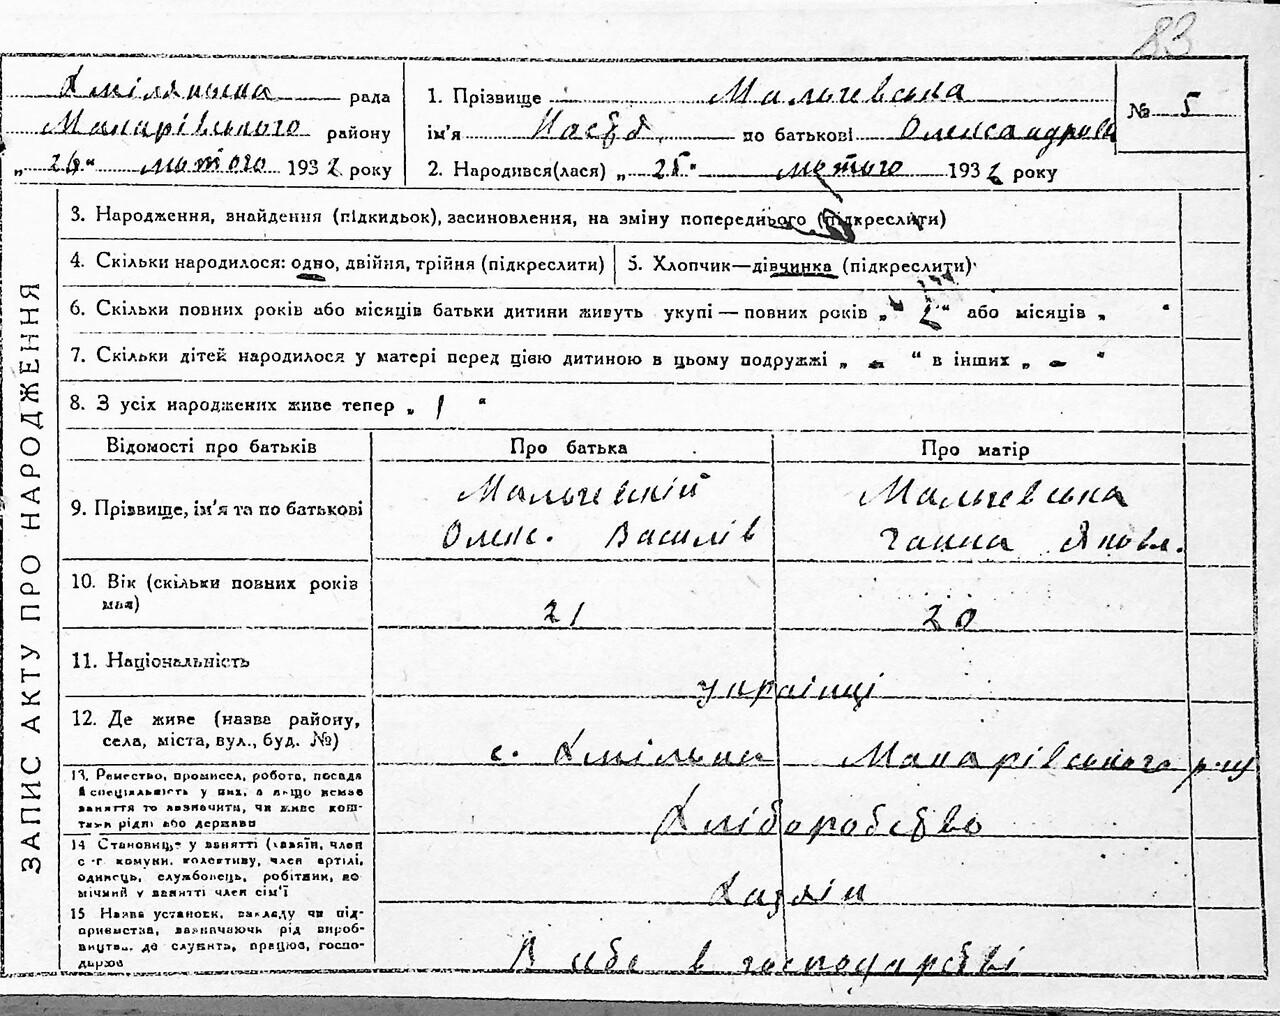 83
Хмілянська рада
Макарівського району
„ 26 “ лютого 1932 року
1. Прізвище Мальчевська
ім'я Настя по батькові Олександрівна
2. Народився(лася) „ 25 “ лютого 1932 року
№ 5
ЗАПИС АКТУ ПРО НАРОДЖЕННЯ
3. Народження, знайдення (підкидьок), засиновлення, на зміну попереднього (підкреслити)
4. Скільки народилося: одно, двійня, трійня (підкреслити)
5. Хлопчик—дівчинка (підкреслити)
6. Скільки повних років або місяців батьки дитини живуть укупі — повних років „ 2 “ або місяців „ “
7. Скільки дітей народилося у матері перед цією дитиною в цьому подружжі „ - “ в інших „ - “
8. З усіх народжених живе тепер „ 1 “
Відомості про батьків
Про батька
Про матір
9. Прізвище, ім'я та по батькові
Мальчевский
Олекс. Василів
Мальчевська
Ганна Яковл.
10. Вік (скільки повних років
мав)
21
20
11. Національність
українці
12. Де живе (назва району,
села, міста, вул., буд. №)
с. Хмільна Макарівського р-ну
13. Ремество, промисел, робота, посада
й спеціяльність у них, а якщо немає
заняття то зазначити, чи живе кош-
тами рідні або держави
Хліборобство
14 Становище у занятті (хазяїн, член
с-г комуни, колективу, член артілі,
одинець, службовець, робітник, по
мічний у занятті член сім'ї
Хазяїн
15 Назва установи, закладу чи під-
приємства, зазначаючь рід вироб-
ництва, де служить, працює, госпо-
дарює
В себе в господарстві